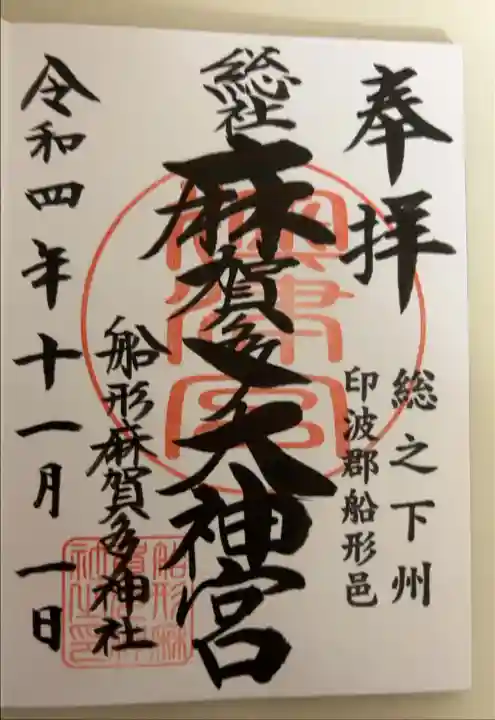 奉拝
総之下州
印波郡船形邑
総社
麻賀多大神宮
船形麻賀多神社
令和四年十一月一日